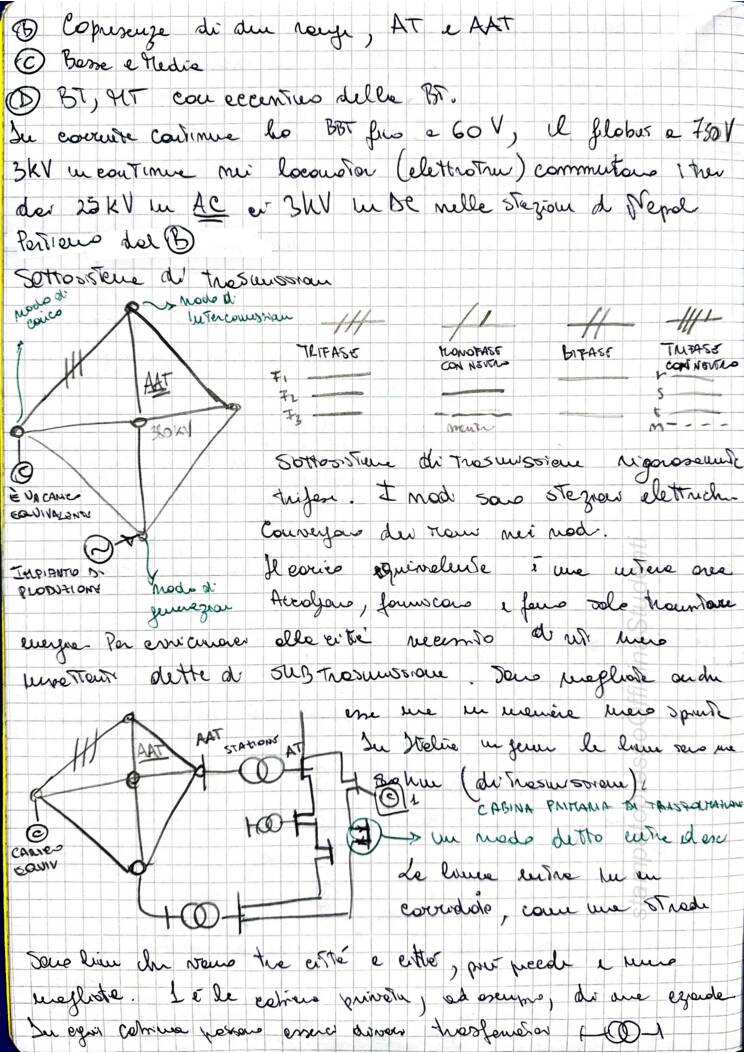 Ⓑ Copresenza di due range, AT e AAT
Ⓒ Bassa e Media
Ⓓ BT, MT con eccentivo della BT.
In corrente continua ho BBT fino a 60V, il filobus a 750V
3kV in continua nei locomotori (elettrotreni) commutano i treni
dai 25kV in AC ai 3kV in DC nelle stazioni di Napoli
Partiamo dal Ⓑ
Sottosistema di trasmissione
nodo di carico
nodo di Interconnessione
AAT
380kV
TRIFASE
MONOFASE CON NEUTRO
BIFASE
TRIFASE CON NEUTRO
F1
F2
F3
neutro
r
s
t
m
C
È UN CARICO EQUIVALENTE
IMPIANTO DI PRODUZIONE
nodo di generazione
Sottosistema di trasmissione rigorosamente
trifase. I nodi sono stazioni elettriche
Convergono dei rami nei nodi.
Il carico equivalente è una intera area
Accolgono, forniscono e fanno solo transitare
energia. Per avvicinarci alle città necessito di reti meno
dette di SUBTrasmissione. Sono magliate anche
esse ma in maniera meno spinta
In Italia in genere le linee sono
(di trasmissione)
AAT
AAT
STAZIONE
AT
C
1
CABINA PRIMARIA DI TRASFORMAZIONE
un nodo detto entra ed esce
CARICO EQUIV
La linea entra in un
corridoio, come una strada
Sono linee che vanno tra città e città, più piccole e meno
magliate. 1 è la cabina privata, ad esempio, di una azienda
In ogni cabina possono esserci diversi trasformatori